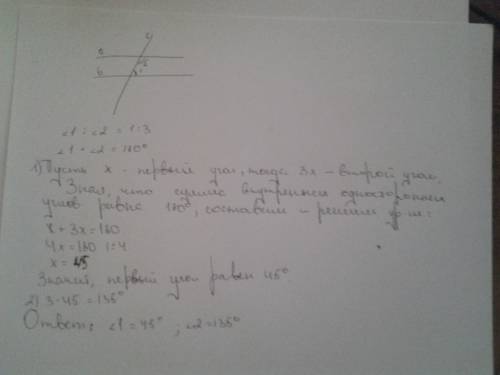 c
a
b
2
1
∠1 : ∠2 = 1:3
∠1 + ∠2 = 180°
1) Пусть x - первый угол, тогда 3x – второй угол.
Зная, что сумма внутренних односторонних
углов равна 180°, составим – решим ур-ие:
x + 3x = 180
4x = 180 |:4
x = 45
Значит, первый угол равен 45°
2) 3·45 = 135°
Ответ: ∠1 = 45° ; ∠2 = 135°